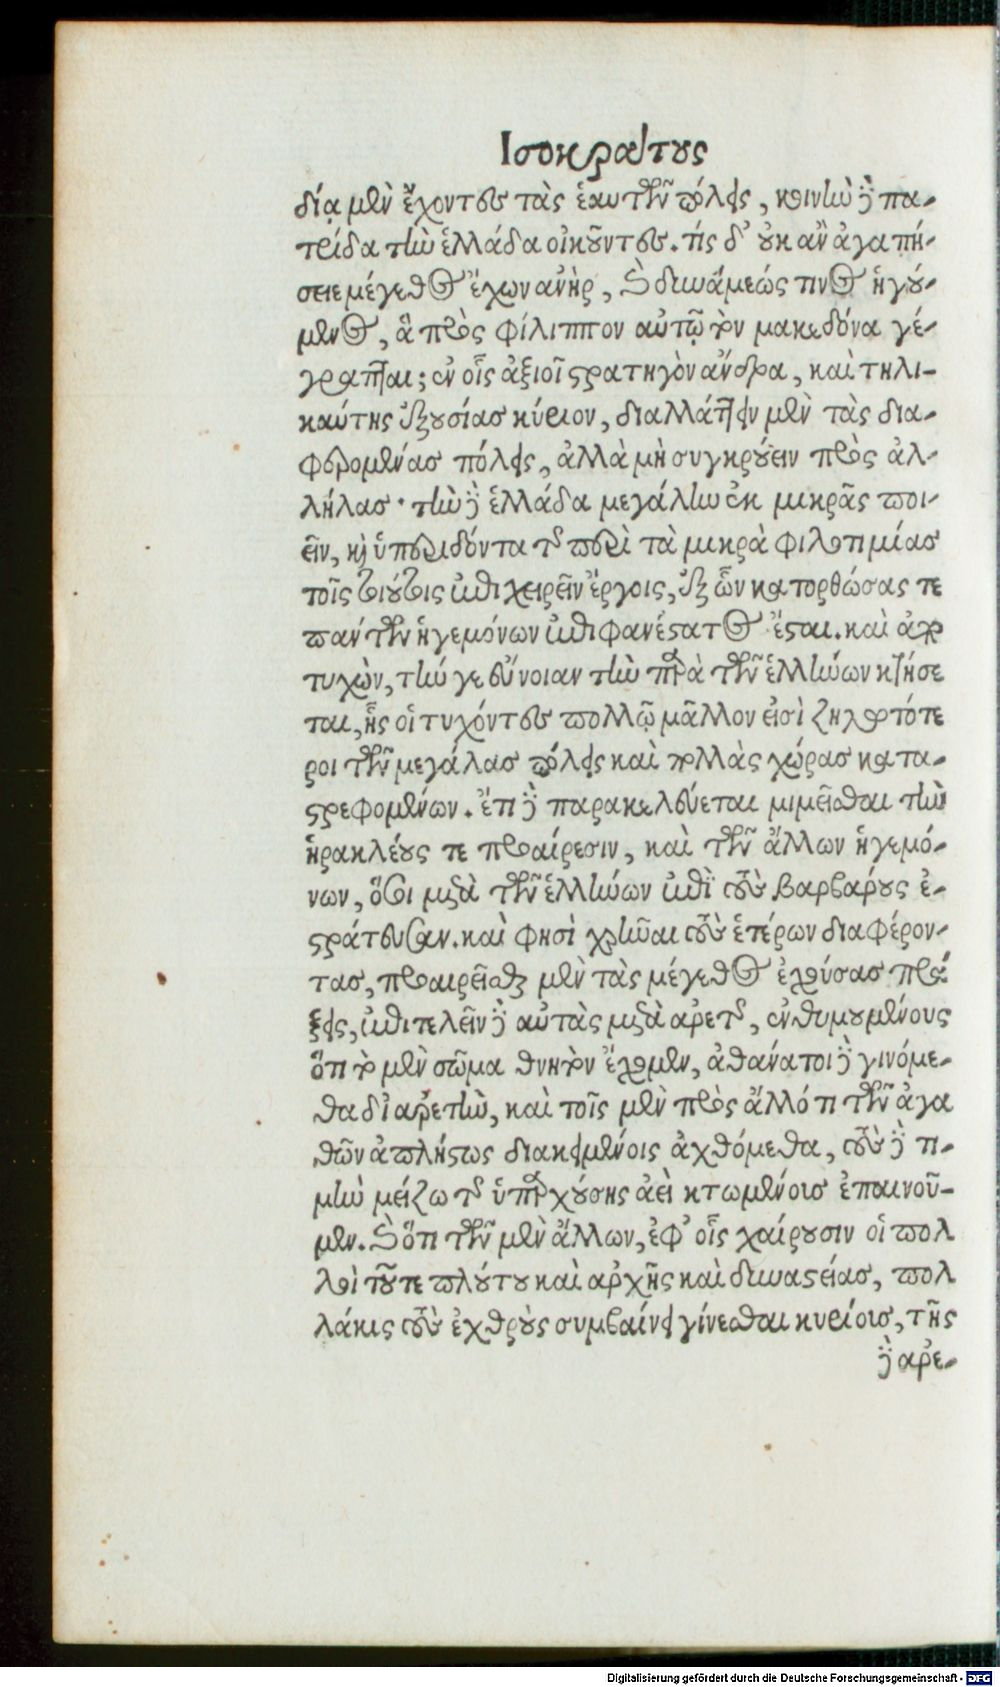 Ισοκράτους
δίᾳ μὲν ἔχοντες τὰς ἑαυτῶν πόλεις, κοινὴν δὲ πα-
τρίδα τὴν ἑλλάδα οἰκοῦντες. τίς δ' οὐκ ἂν ἀγαπή-
σειε μέγεθος ἔχων ἀνὴρ, καὶ δυνάμεώς τινος ἡγού-
μενος, ἃ πρὸς φίλιππον αὐτῷ τὸν μακεδόνα γέ-
γραπται; ἐν οἷς ἀξιοῖ στρατηγὸν ἄνδρα, καὶ τηλι-
καύτης ἐξουσίας κύριον, διαλλάττειν μὲν τὰς δια-
φερομένας πόλεις, ἀλλὰ μὴ συγκρούειν πρὸς ἀλ-
λήλας· τὴν δὲ ἑλλάδα μεγάλην ἐκ μικρᾶς ποι-
εῖν, καὶ ὑπεριδόντα τῆς περὶ τὰ μικρὰ φιλοτιμίας
τοῖς τοιούτοις ἐπιχειρεῖν ἔργοις, ἐξ ὧν κατορθώσας τε
πάντων ἡγεμόνων ἐπιφανέστατος ἔσται. καὶ ἀπο
τυχὼν, τήν γε εὔνοιαν τὴν παρὰ τῶν ἑλλήνων κτήσε
ται, ἧς οἱ τυχόντες πολλῷ μᾶλλον εἰσὶ ζηλωτότε
ροι τῶν μεγάλας πόλεις καὶ πολλὰς χώρας κατα-
στρεφομένων. ἔτι δὲ παρακελεύεται μιμεῖσθαι τὴν
ἡρακλέους τε προαίρεσιν, καὶ τῶν ἄλλων ἡγεμό-
νων, ὅσοι μετὰ τῶν ἑλλήνων ἐπὶ τοὺς βαρβάρους ἐ-
στράτευσαν. καὶ φησὶ χρῆναι τοὺς ἑτέρων διαφέρον-
τας, προαιρεῖσθαι μὲν τὰς μέγεθος ἐχούσας πρά
ξεις, ἐπιτελεῖν δὲ αὐτὰς μετὰ ἀρετῆς, ἐνθυμουμένους
ὅτι τὸ μὲν σῶμα θνητὸν ἔχομεν, ἀθάνατοι δὲ γινόμε-
θα δι' ἀρετὴν, καὶ τοῖς μὲν πρὸς ἄλλό τι τῶν ἀγα
θῶν ἀπλήστως διακειμένοις ἀχθόμεθα, τοὺς δὲ τι-
μὴν μείζω τῆς ὑπαρχούσης ἀεὶ κτωμένοις ἐπαινοῦ-
μεν. καὶ ὅτι τῶν μὲν ἄλλων, ἐφ' οἷς χαίρουσιν οἱ πολ
λοὶ τοῦτε πλούτου καὶ ἀρχῆς καὶ δυναστείας, πολ
λάκις τοὺς ἐχθροὺς συμβαίνει γίνεσθαι κυρίοις, τῆς
δὲ ἀρε-
Digitalisierung gefördert durch die Deutsche Forschungsgemeinschaft - DFG